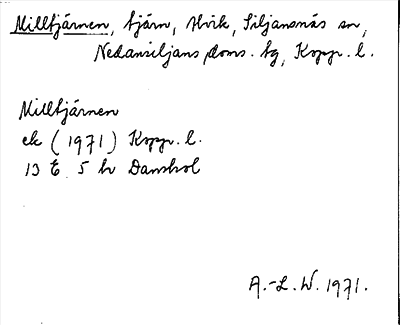 Milltjärnen, tjärn, Alvik, Siljansnäs sn,
Nedansiljans doms. tg, Kopp. l.
Milltjärnen
ek (1971) Kopp. l.
13 E 5 h Danshol
A.-L. W. 1971.